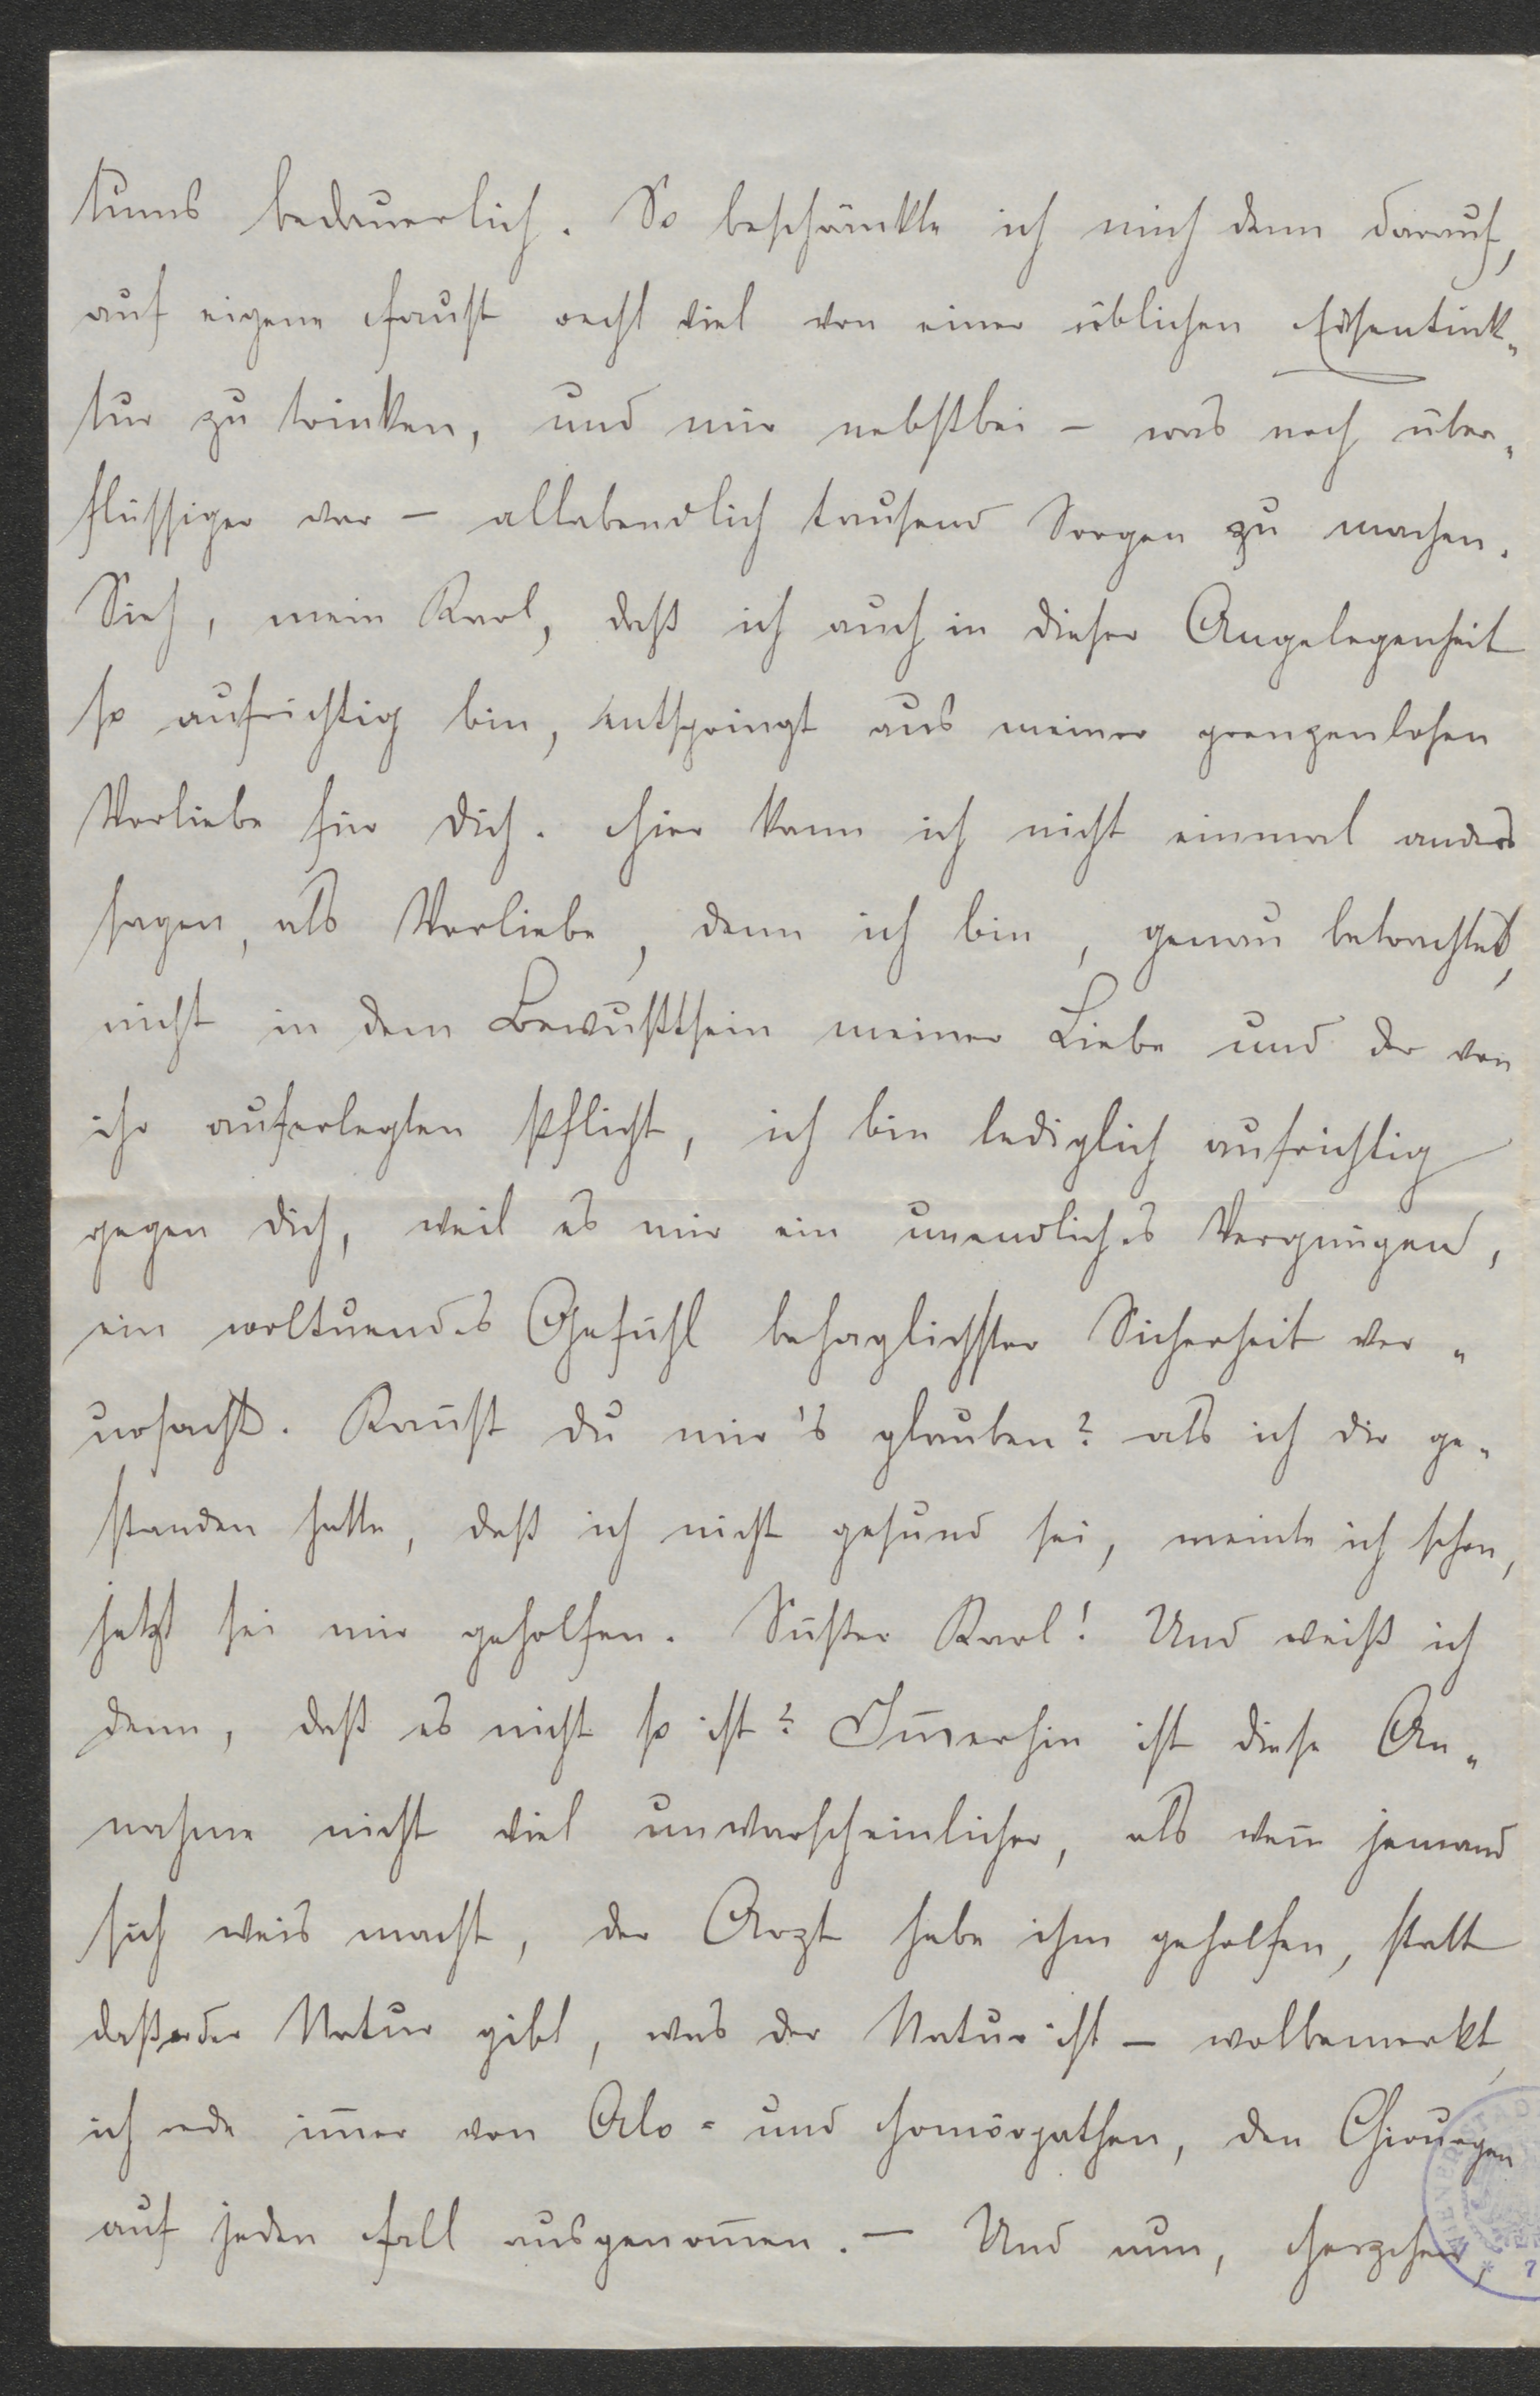 tums bedauerlich. So beschänkte ich mich denn darauf,
auf eigene Faust recht viel von einer üblichen Eisentink-
tur zu trinken, und mir nebstbei – was noch über-
flüssiger war – allabendlich tausend Sorgen zu machen.
Sieh, mein Karl, daß ich auch in dieser Angelegenheit
so aufrichtig bin, entspringt aus meiner grenzenlosen
Vorliebe für dich. Hier kann ich nicht einmal anders
sagen, als Vorliebe, denn ich bin, genau betrachtet,
nicht in dem Bewußtsein meiner Liebe und der von
ihr auferlegten Pflicht, ich bin lediglich aufrichtig
gegen dich, weil es mir ein unendliches Vergnügen,
ein woltuendes Gefühl behaglichster Sicherheit ver-
ursacht. Kannst du mir's glauben? als ich dir ge-
standen hatte, daß ich nicht gesund sei, meinte ich schon,
jetzt sei mir geholfen. Süßer Karl! Und weiß ich
denn, daß es nicht so ist? Im̅erhin ist diese An-
nahme nicht viel unwarscheinlicher, als wen̅ jemand
sich weis macht, der Arzt habe ihm geholfen, statt
daß er der Natur gibt, was der Natur ist – wolbemerkt,
ich rede im̅er von Alo- und Homöopathen, den Chirurgen
auf jeden Fall ausgenom̅en. – Und nun, Herzchen,